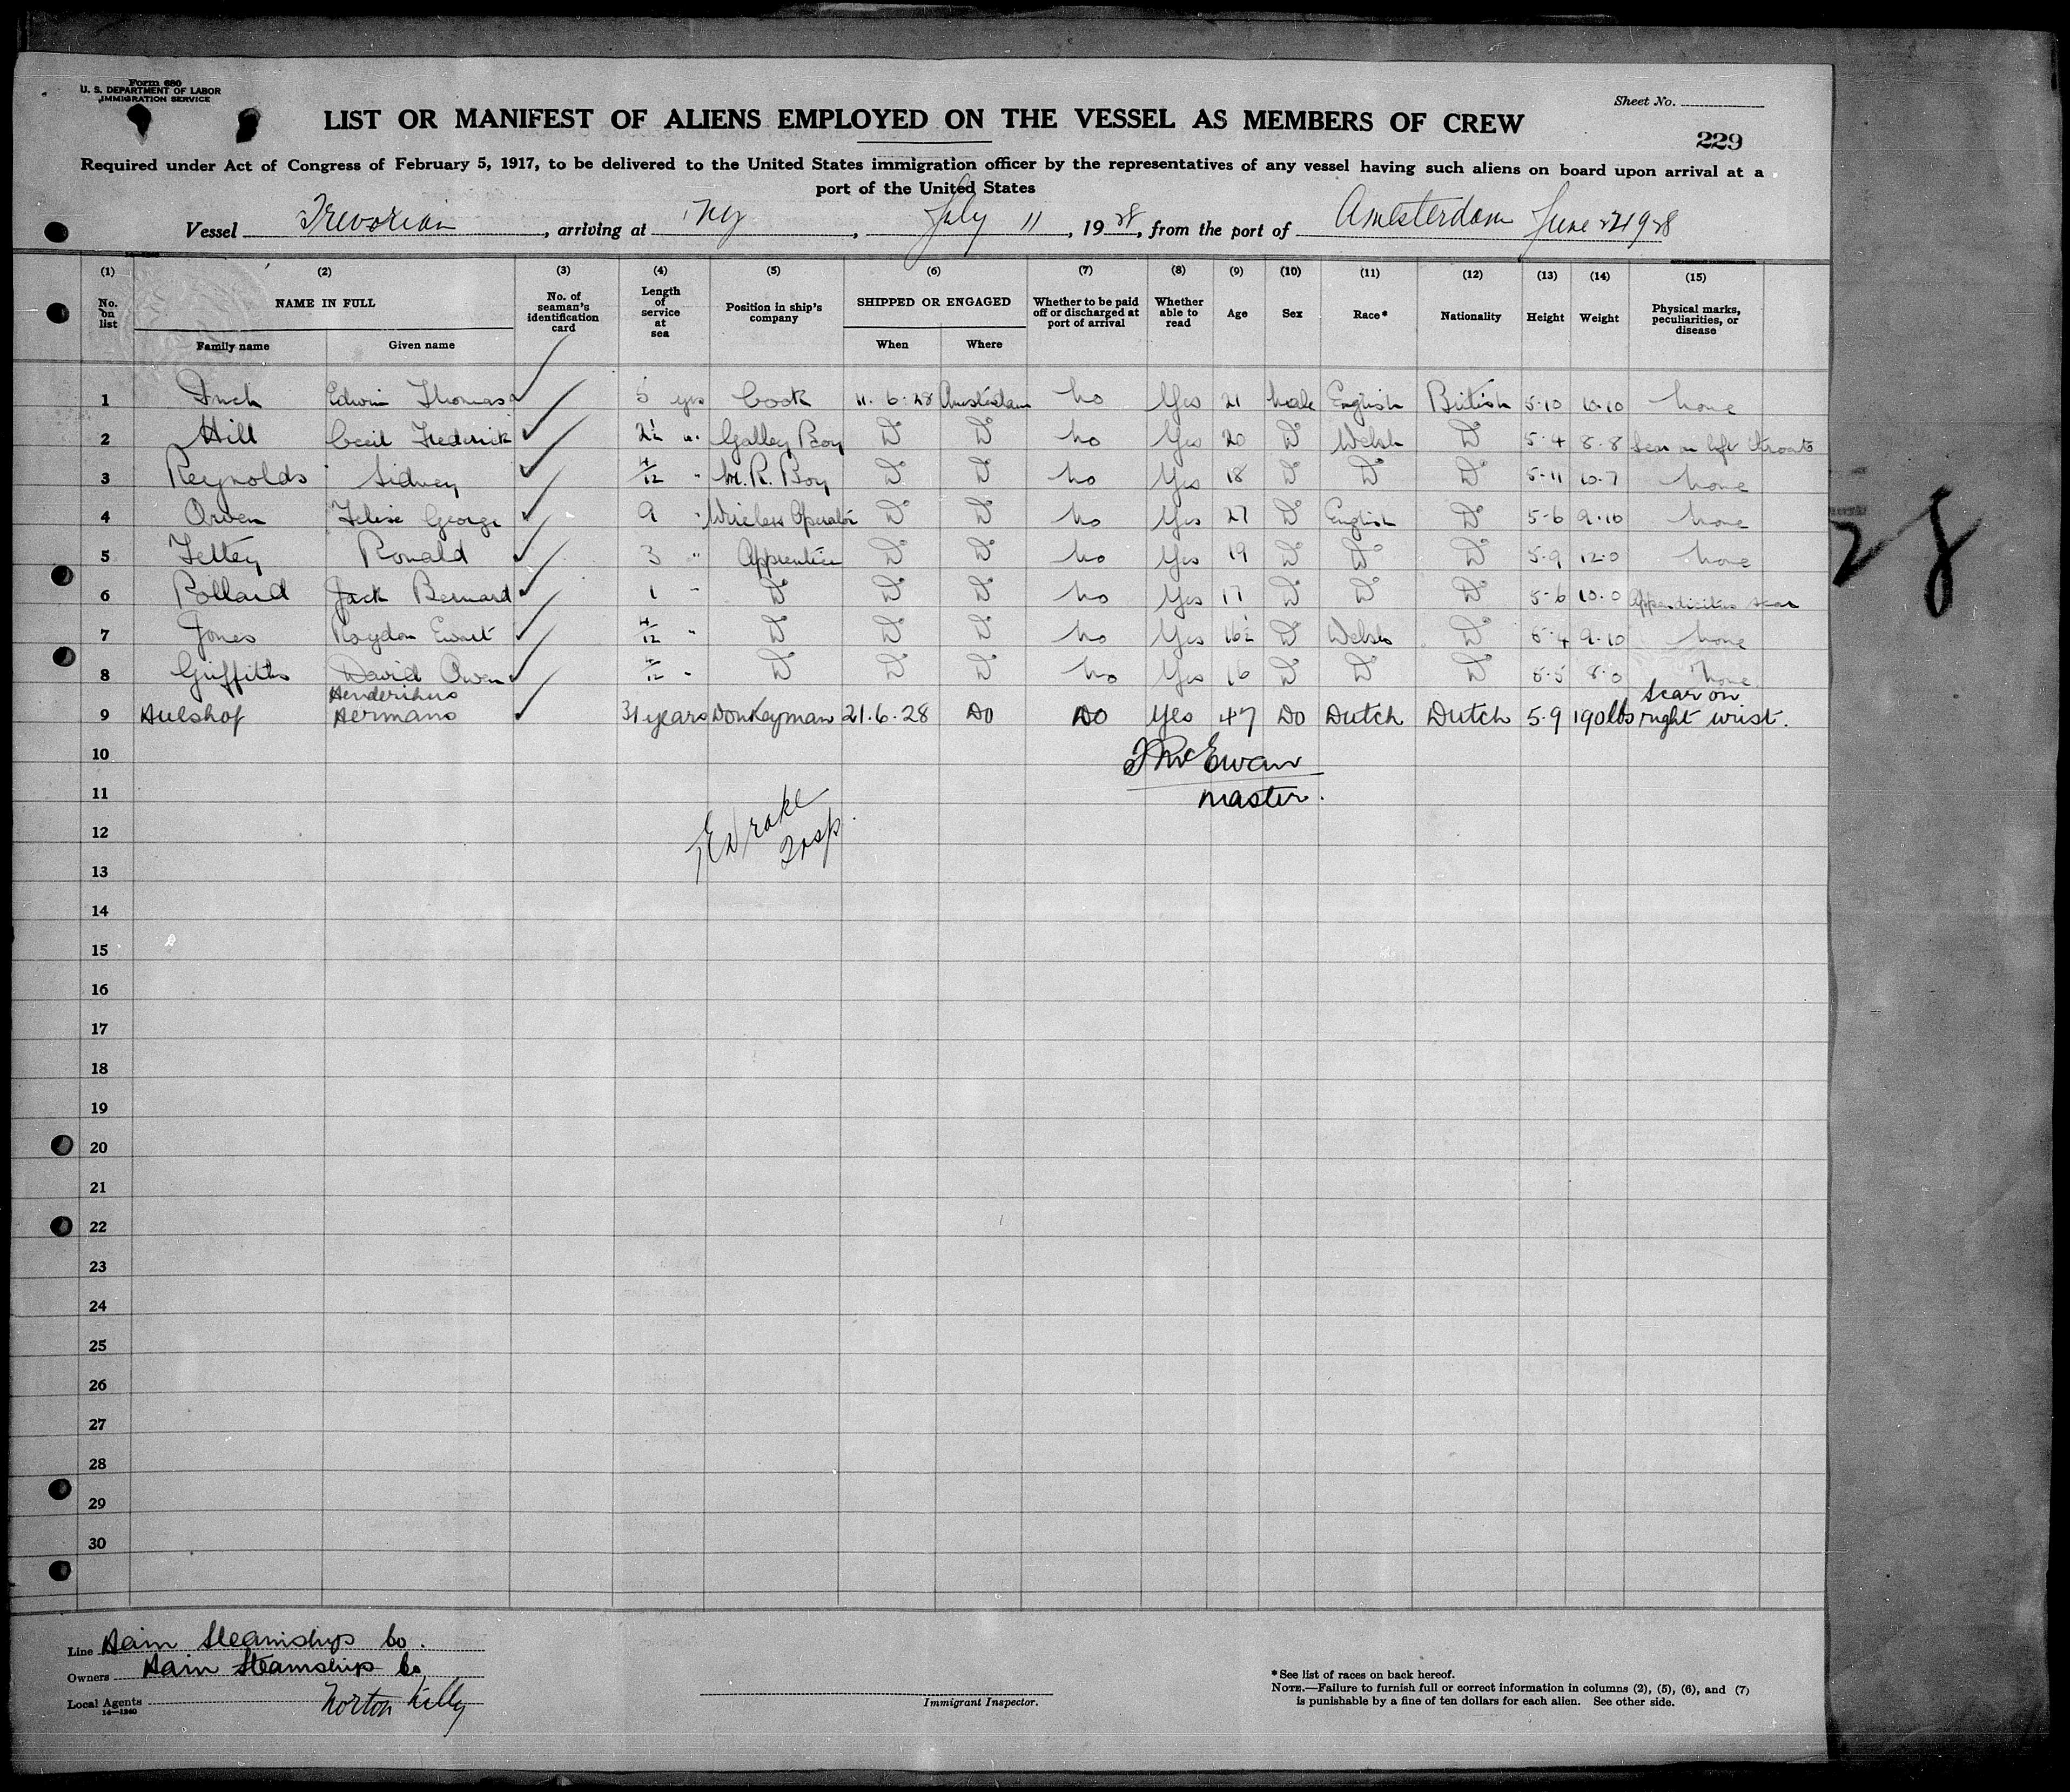 Form 680
U. S. DEPARTMENT OF LABOR
IMMIGRATION SERVICE
Sheet No.
LIST OR MANIFEST OF ALIENS EMPLOYED ON THE VESSEL AS MEMBERS OF CREW
229
Required under Act of Congress of February 5, 1917, to be delivered to the United States immigration officer by the representatives of any vessel having such aliens on board upon arrival at a
port of the United States
Vessel Trevorian, arriving at NY, July 11, 1928, from the port of Amesterdam June 1928
(1) (2) (3) (4) (5) (6) (7) (8) (9) (10) (11) (12) (13) (14) (15)
No. on list NAME IN FULL No. of seaman's identification card Length of service at sea Position in ship's company SHIPPED OR ENGAGED Whether to be paid off or discharged at port of arrival Whether able to read Age Sex Race* Nationality Height Weight Physical marks, peculiarities, or disease
Family name Given name When Where
1 Inch Edwin Thomas 5 yrs Cook 11.6.28 Amsterdam No Yes 21 Male English British 5-10 10-10 None
2 Hill Cecil Frederick 2½ " Galley Boy Do Do No Yes 20 Do Welsh Do 5-4 8-8 Scar on left throat
3 Reynolds Sidney 4/12 " M.R. Boy Do Do No Yes 18 Do Do Do 5-11 10-7 None
4 Owen George 9 " Wireless Operator Do Do No Yes 27 Do English Do 5-6 9-10 None
5 Ronald 3 " Apprentice Do Do No Yes 19 Do Do Do 5-9 12-0 None
6 Pollard Jack Bernard 1 " Do Do Do No Yes 17 Do Do Do 5-6 10-0 Appendicitis scar
7 Jones Roydon Ewart 4/12 " Do Do Do No Yes 16½ Do Welsh Do 5-4 9-10 None
8 Griffiths David Owen 4/12 " Do Do Do No Yes 16 Do Do Do 5-5 8-0 None
9 Hulshof Henderikus Hermans 31 years Donkeyman 21.6.28 Do Do Yes 47 Do Dutch Dutch 5-9 190lbs scar on right wrist.
10 J McEwan
11 master.
12
13
14
15
16
17
18
19
20
21
22
23
24
25
26
27
28
29
30
28
Line Hain Steamships Co.
Owners Hain Steamship Co
Local Agents Norton Lilly
14—1240
Immigrant Inspector.
*See list of races on back hereof.
NOTE.—Failure to furnish full or correct information in columns (2), (5), (6), and (7)
is punishable by a fine of ten dollars for each alien. See other side.